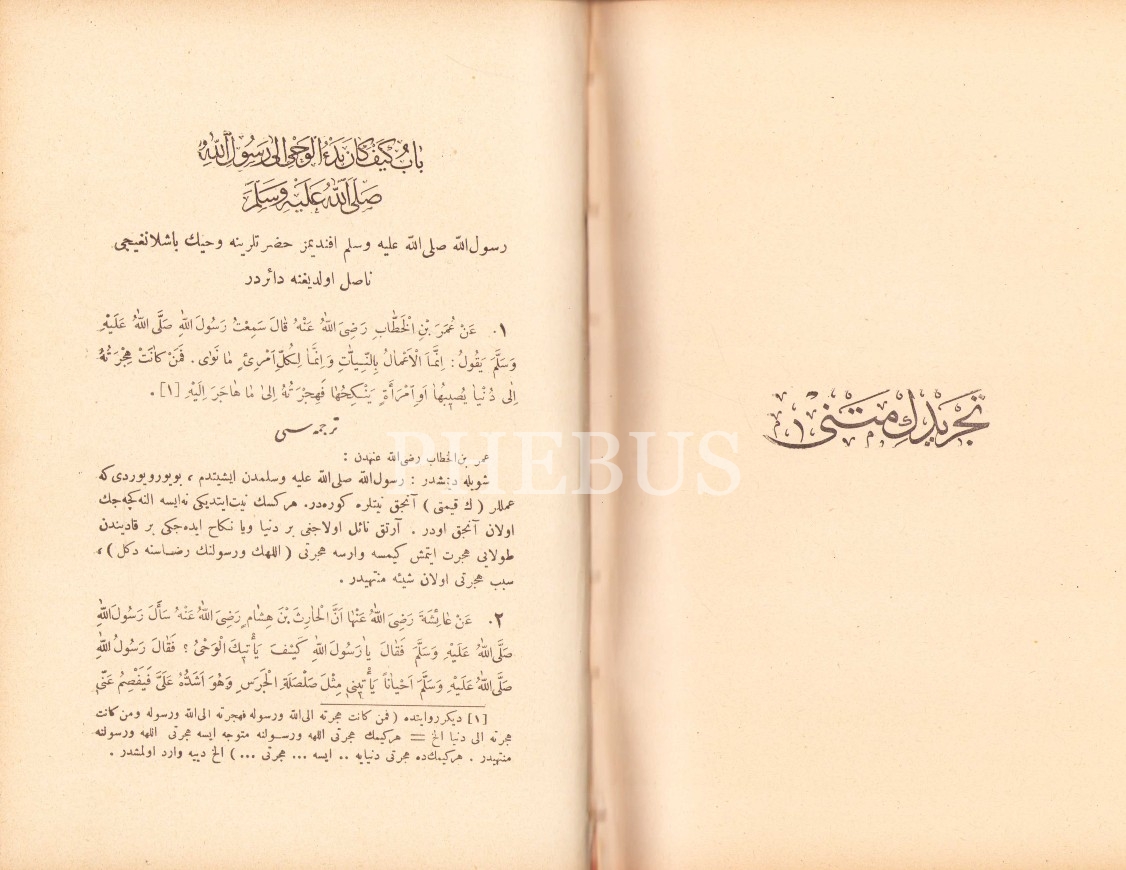 تجريدك متنى
باب كيف كان بدء الوحى الى رسول الله
صلى الله عليه وسلم
رسول الله صلى الله عليه وسلم افنديمز حضرتلرينه وحيك باشلانغيجى
ناصل اولديغنه دائردر
١. عَنْ عُمَرَ بْنِ الْخَطَّابِ رَضِىَ اللهُ عَنْهُ قَالَ سَمِعْتُ رَسُولَ اللهِ صَلَّى اللهُ عَلَيْهِ
وَسَلَّمَ يَقُولُ: اِنَّمَا الْاَعْمَالُ بِالنِّيَّاتِ وَاِنَّمَا لِكُلِّ اَمْرِئٍ مَا نَوٰى. فَمَنْ كَانَتْ هِجْرَتُهُ
اِلٰى دُنْيَا يُصِيبُهَا اَوِ اَمْرَأَةٍ يَنْكِحُهَا فَهِجْرَتُهُ اِلٰى مَا هَاجَرَ اِلَيْهِ [١].
ترجمه سى
عمر بن الخطاب رضى الله عنهدن :
شويله ديمشدر : رسول الله صلى الله عليه وسلمدن ايشيتدم ، بويورويوردى كه
عمللر ( ك قيمتى ) آنجق نيتلره كوره در. هركسك نيت ايتديكى نه ايسه النه كچه جك
اولان آنجق اودر . آرتق نائل اولاجغى بر دنيا ويا نكاح ايده جكى بر قاديندن
طولايى هجرت ايتمش كيمسه وارسه هجرتى ( اللهك ورسولنك رضاسنه دكل ) ،
سبب هجرتى اولان شيئه منتهيدر .
٢. عَنْ عَائِشَةَ رَضِىَ اللهُ عَنْهَا اَنَّ الْحَارِثَ بْنَ هِشَامٍ رَضِىَ اللهُ عَنْهُ سَأَلَ رَسُولَ اللهِ
صَلَّى اللهُ عَلَيْهِ وَسَلَّمَ فَقَالَ يَا رَسُولَ اللهِ كَيْفَ يَأْتِيكَ الْوَحْىُ ؟ فَقَالَ رَسُولُ اللهِ
صَلَّى اللهُ عَلَيْهِ وَسَلَّمَ اَحْيَاناً يَأْتِينِى مِثْلَ صَلْصَلَةِ الْجَرَسِ وَهُوَ اَشَدُّهُ عَلَىَّ فَيَفْصِمُ عَنِّى
[١] ديكر روايتده ( فمن كانت هجرته الى الله ورسوله فهجرته الى الله ورسوله ومن كانت
هجرته الى دنيا الخ = هركيمك هجرتى اللهه ورسولنه متوجه ايسه هجرتى اللهه ورسولنه
منتهيدر . هركيمك ده هجرتى دنيايه .. ايسه ... هجرتى ... ) الخ دييه وارد اولمشدر .
PHEBUS